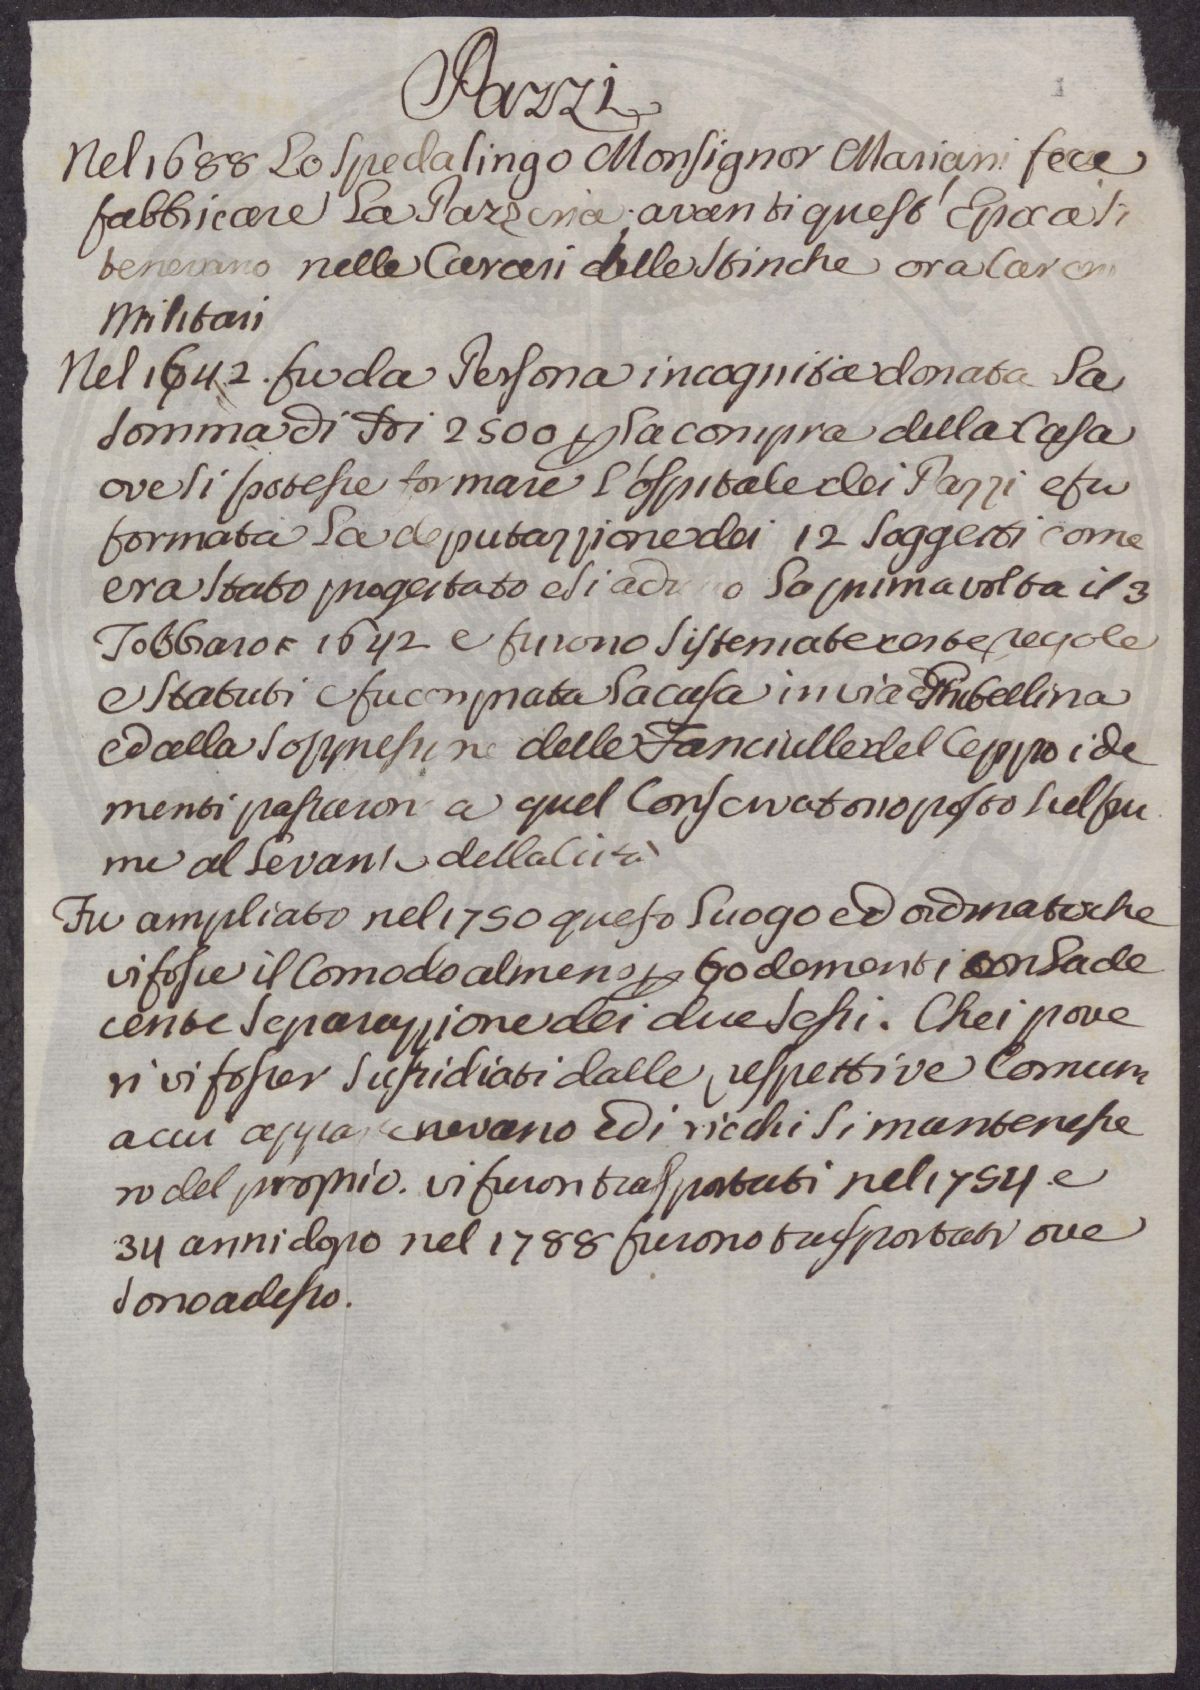 Pazzi
Nel 1688 Lo Spedalingo Monsignor Mariani fece
fabbricare La Pazzeria; avanti quest' Epoca Si
tenevano nelle Carceri delle Stinche ora Carceri
Militari
Nel 1642. fu da Persona incognita donata La
Somma di 2500 La compra della Casa
ove Si potesse formare L'ospitale dei Pazzi e fu
formata La deputazzione dei 12 Soggetti come
era Stato progettato e Si aduno La prima volta il 3
1642 e furono Sistemate certe regole
e Statuti e fu comprata La casa in via Ghibellina
e dalla Soppressione delle Fanciulle del Ceppo i de
menti passaron a quel Conservatorio posto Sul fiu
me al Levante della Città
Fu ampliato nel 1750 questo Luogo ed ordinato che
vi fosse il Comodo almeno 60 dementi con La de
cente Separazzione dei due Sessi. Che i pove
ri vi fosser Sussidiati dalle respettive Comuni
a cui appartenevano ed i ricchi Si mantenesse
ro del proprio. vi furon trasportati nel 1754 e
34 anni dopo nel 1788 furono trasportati ove
Sono adesso.